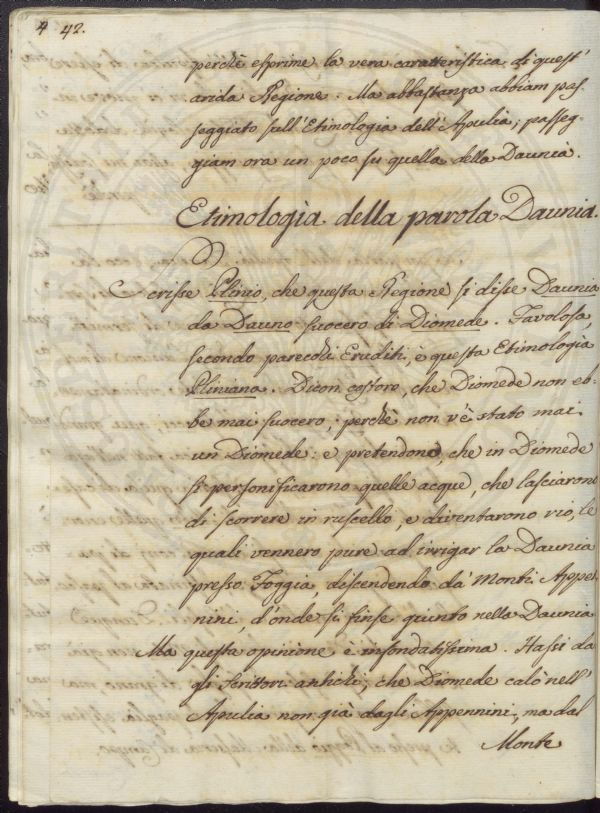 4 42.
perchè esprime la vera caratteristica di quest'
arida Regione. Ma abbastanza abbiam pas
seggiato sull'Etimologia dell'Apulia; passeg-
giam ora un poco su quella della Daunia.
Etimologia della parola Daunia.
Scrisse Plinio, che questa Regione si disse Daunia
da Dauno suocero di Diomede. Favolosa,
secondo parecchi Eruditi, è questa Etimologia
Pliniana. Dicon costoro, che Diomede non eb-
be mai suocero; perchè non v'è stato mai
un Diomede: e pretendono, che in Diomede
si personificarono quelle acque, che lasciarono
di scorrere in ruscello, e diventarono rio, le
quali vennero pure ad irrigar la Daunia
presso Foggia, discendendo dà Monti Appen
nini, d'onde si finse giunto nella Daunia
Ma questa opinione è infondatissima. Hassi da
gli Scrittori antichi, che Diomede calò nell'
Apulia non già dagli Appennini, ma dal
Monte